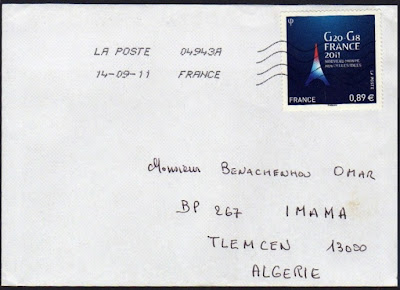 LA POSTE 04943A
14-09-11 FRANCE
G20-G8
FRANCE
2011
NOUVEAU MONDE
NOUVELLES IDÉES
LA POSTE
FRANCE 0,89 €
Monsieur BENACHENHOU OMAR
BP 267 IMAMA
TLEMCEN 13000
ALGERIE